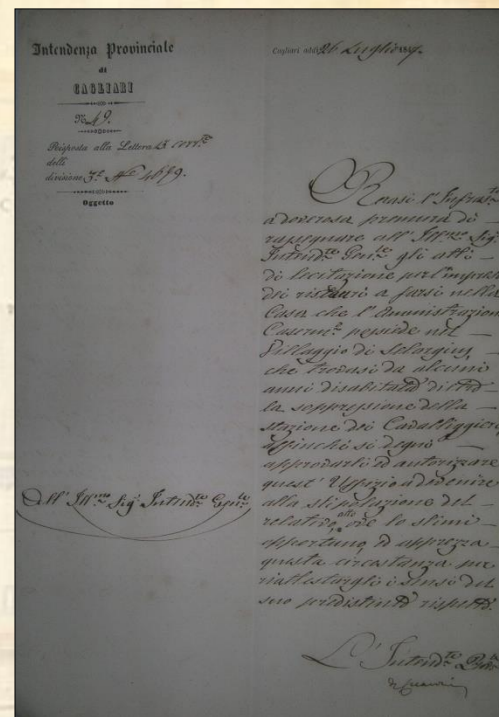 Intendenza Provinciale
di
CAGLIARI
N. 49.
Risposta alla Lettera 15 corr.te
delli
divisione 3.a N.o 4679.
Oggetto
All' Ill.mo Sig.r Intend.te Gen.le
Cagliari addì 26 Luglio
Recasi l'Infras.to
a doverosa premura di
rassegnare all' Ill.mo Sig.
Intend.te Gen.le gli atti
di licitazione per l'impresa
dei ristauri a farsi nella
Casa che l'Amministrazion
Caserm.e possiede nel
Villaggio di Selargius,
che trovasi da alcuni
anni disabitata
la soppressione della
stazione dei Cavalleggieri
affinchè si degni
approvarli ed autorizzare
quest' Uffizio a devenire
alla stipolazione del
relativo atto ove lo stimi
opportuno, ed apprezza
questa circostanza per
riattestargli i sensi del
suo predistinto rispetto.
L' Intend.te Prov.le